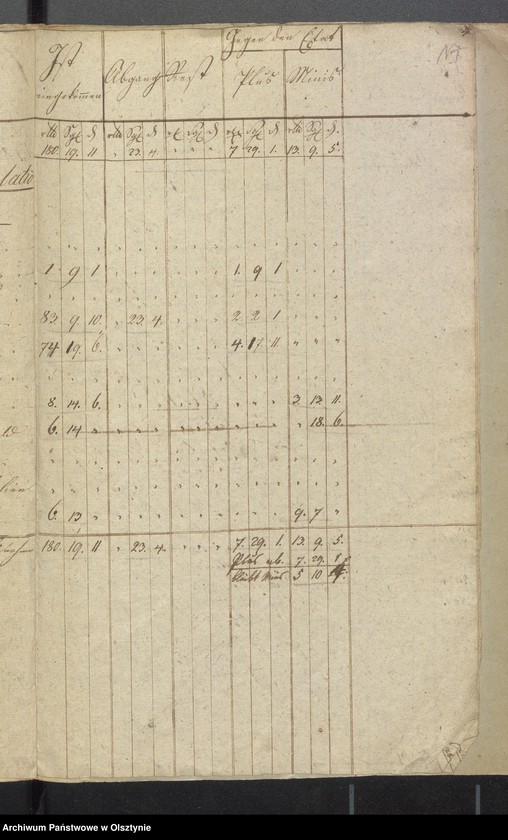 Gegen den Etat
Ist eingekommen Abgang Rest Plus Minus
rtlr Sgl d rtlr Sgl d rtl Sgl d rtl Sgl d rtlr Sgl d.
180. 19. 11 " 23. 4. " " " 7 29. 1. 13. 9. 5.
latio
1. 9 1 1. 9 1
83. 9. 10. " 23. 4. 2. 2 1
74 19. 6. 4. 17. 11. " " "
8. 14. 6. 3. 13. 11.
6. 14 " " 18. 6.
6. 13 " 9. 7 "
180. 19. 11 " 23. 4. " " " 7. 29. 1. 13. 9 5.
Plus ab. 7. 29. 1
bleibt Mins 5 10 4.
Archiwum Państwowe w Olsztynie